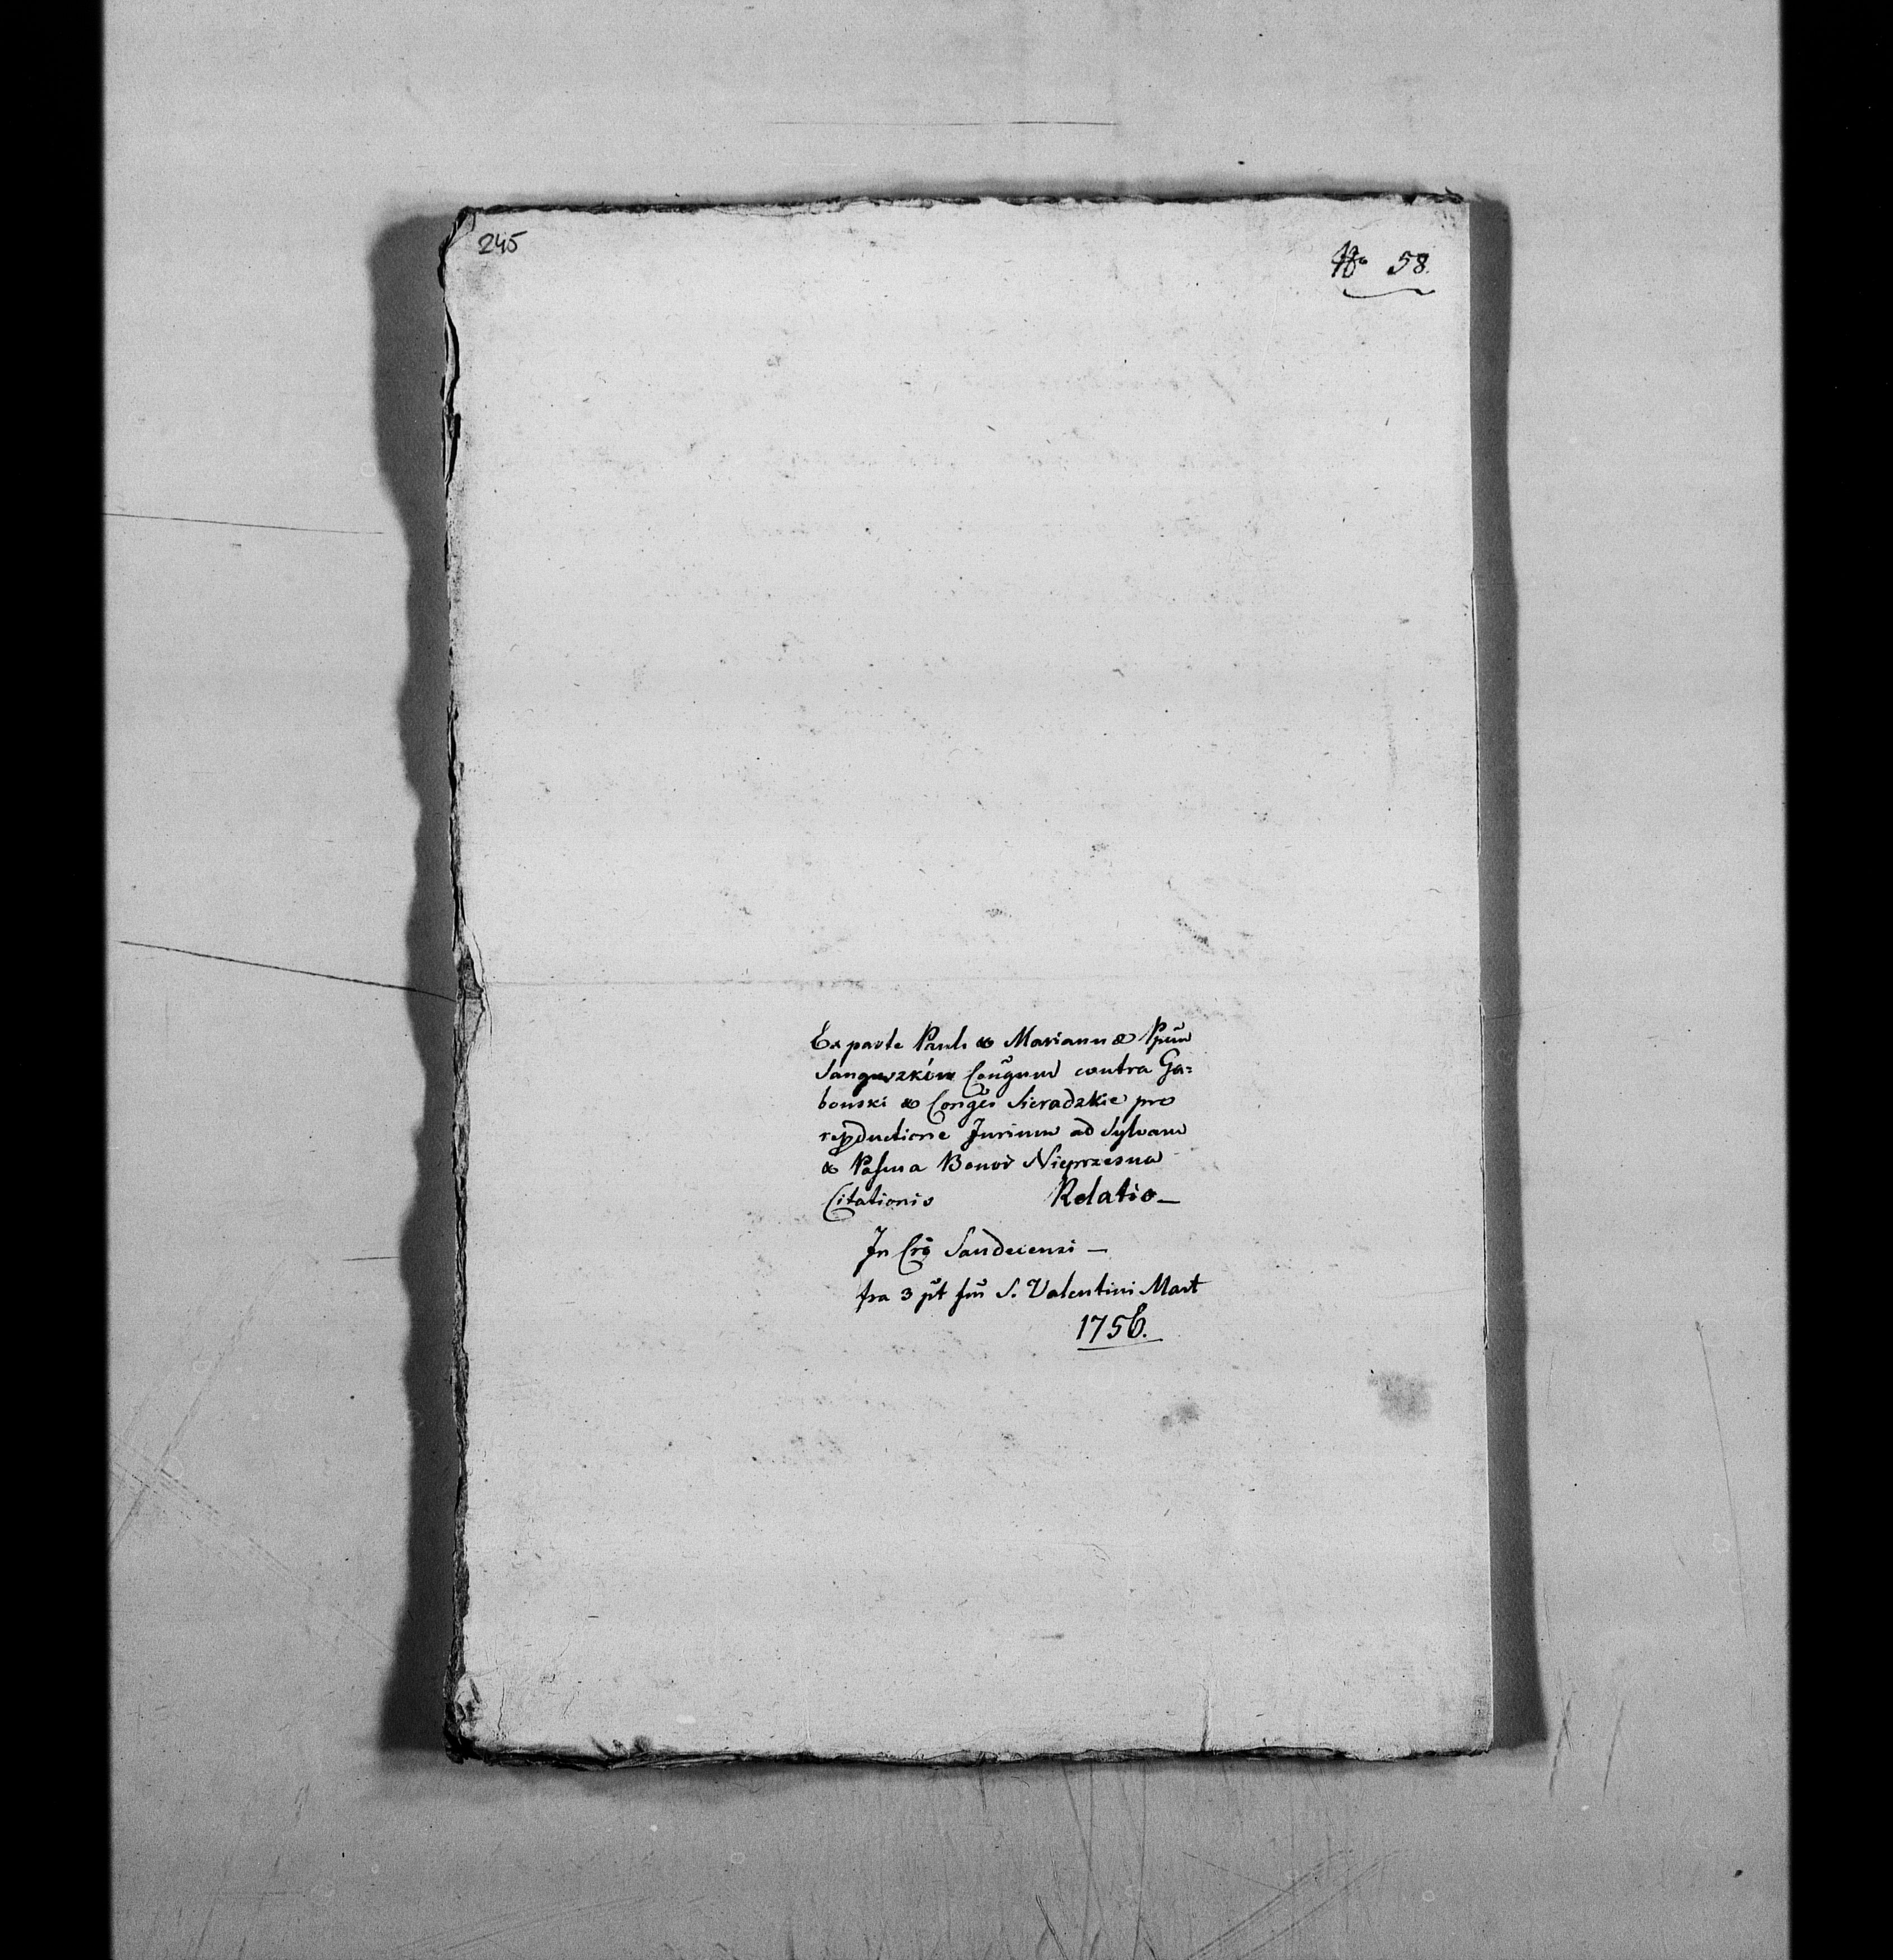 245
No 58.
Ex parte Pauli & Mariannæ Ppũm
Sanguszków Cõngum contra Ga=
bonski & Congẽs Sieradzkie pro
reproductione Jurium ad Sylvam
& Pascua Bonor Nieprzesna
Citationis Relatio —
In Crõ Sandecensi —
fra 3 pt fm S. Valentini Mart
1756.